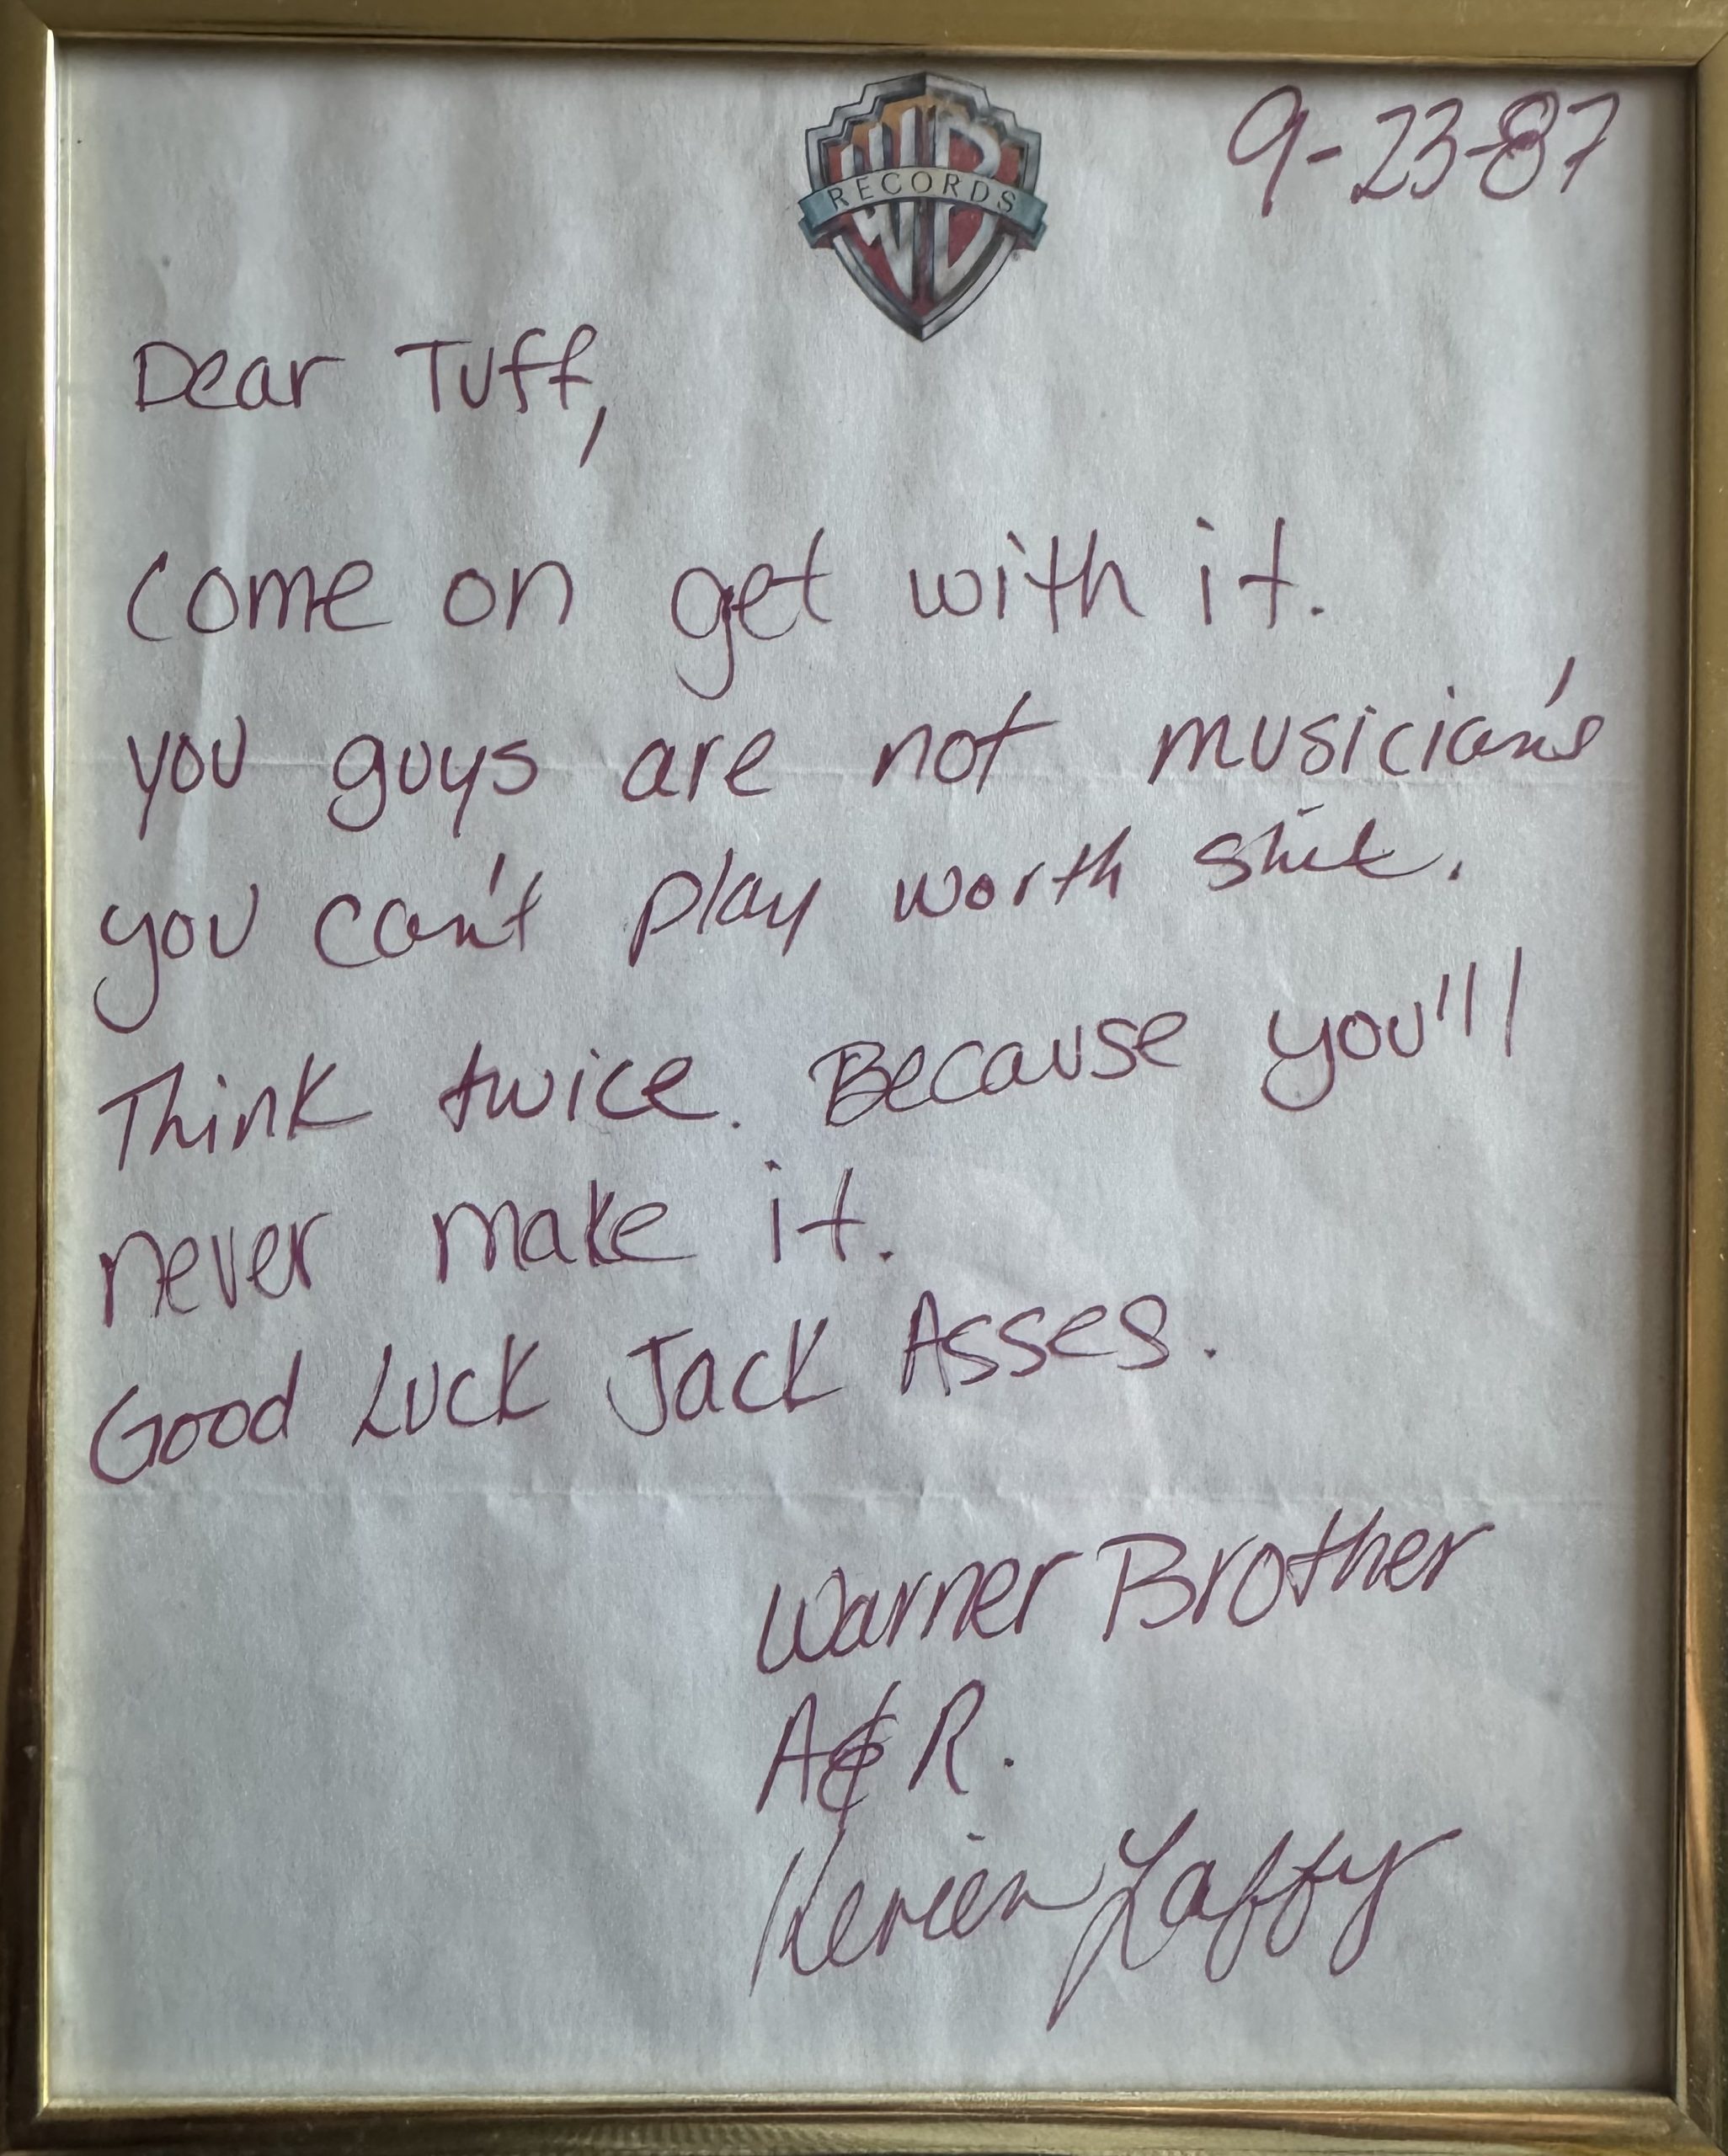 WB
RECORDS
9-23-87
Dear Tuff,
Come on get with it.
you guys are not musician's
you can't play worth shit.
Think twice. Because you'll
never make it.
Good Luck Jack Asses.
Warner Brother
A&R.
Laffy